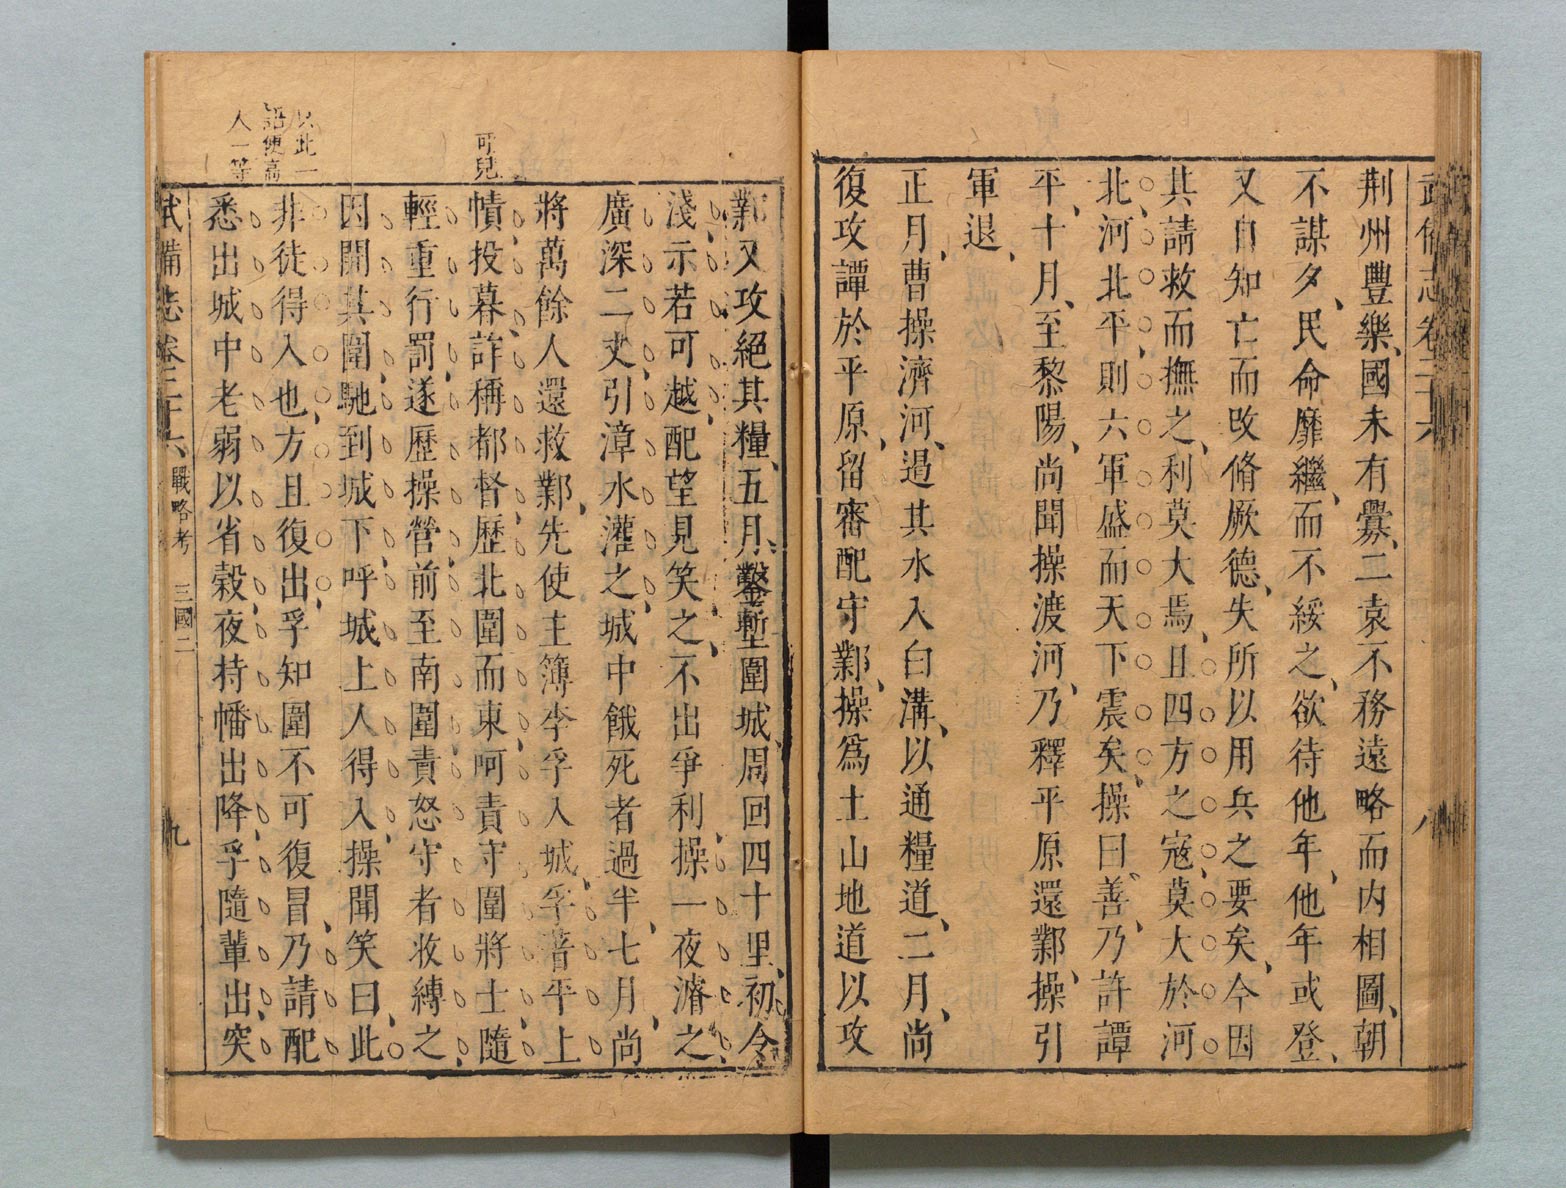 武備志卷二十六 八
荆州豐樂、國未有釁、二袁不務遠略而内相圖、朝
不謀夕、民命靡繼、而不綏之、欲待他年、他年或登、
又自知亡而改脩厥德、失所以用兵之要矣、今因
其請救而撫之、利莫大焉、且四方之寇、莫大於河
北、河北平、則六軍盛而天下震矣、操曰、善、乃許譚
平、十月、至黎陽、尚聞操渡河、乃釋平原還鄴、操引
軍退、
正月、曹操濟河、遏其水入白溝、以通糧道、二月、尚
復攻譚於平原、留審配守鄴、操爲土山地道以攻
鄴、又攻絕其糧、五月、鑿塹圍城、周回四十里、初令
淺、示若可越、配望見笑之、不出爭利、操一夜濬之、
廣深二丈、引漳水灌之、城中餓死者過半、七月、尚
將萬餘人還救鄴、先使主簿李孚入城、孚著平上
幘、投暮、詐稱都督、歷北圍而東、呵責守圍將士、隨
輕重行罰、遂歷操營、前至南圍、責怒守者、收縛之、
因開其圍、馳到城下、呼城上人、得入、操聞笑曰、此
非徒得入也、方且復出、孚知圍不可復冒、乃請配
悉出城中老弱以省穀、夜持幡出降、孚隨輩出、突
可兒
以此一
語便高
人一等
武備志卷二十六 戰略考 三國二 九